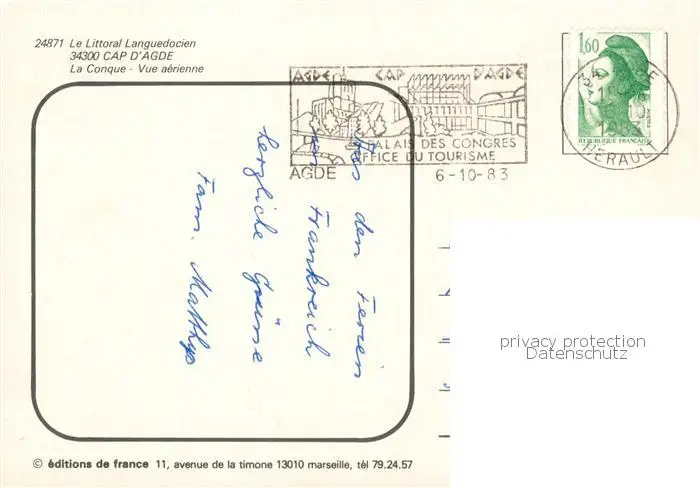 24871 Le Littoral Languedocien
34300 CAP D'AGDE
La Conque - Vue aérienne
AGDE CAP D'AGDE
PALAIS DES CONGRES
OFFICE DU TOURISME
AGDE
6-10-83
1,60
POSTES
REPUBLIQUE FRANÇAISE
HERAULT
Aus den Ferien
in
Frankreich
herzliche Grüsse
Fam. Matthys
privacy protection
Datenschutz
© éditions de france 11, avenue de la timone 13010 marseille, tél 79.24.57